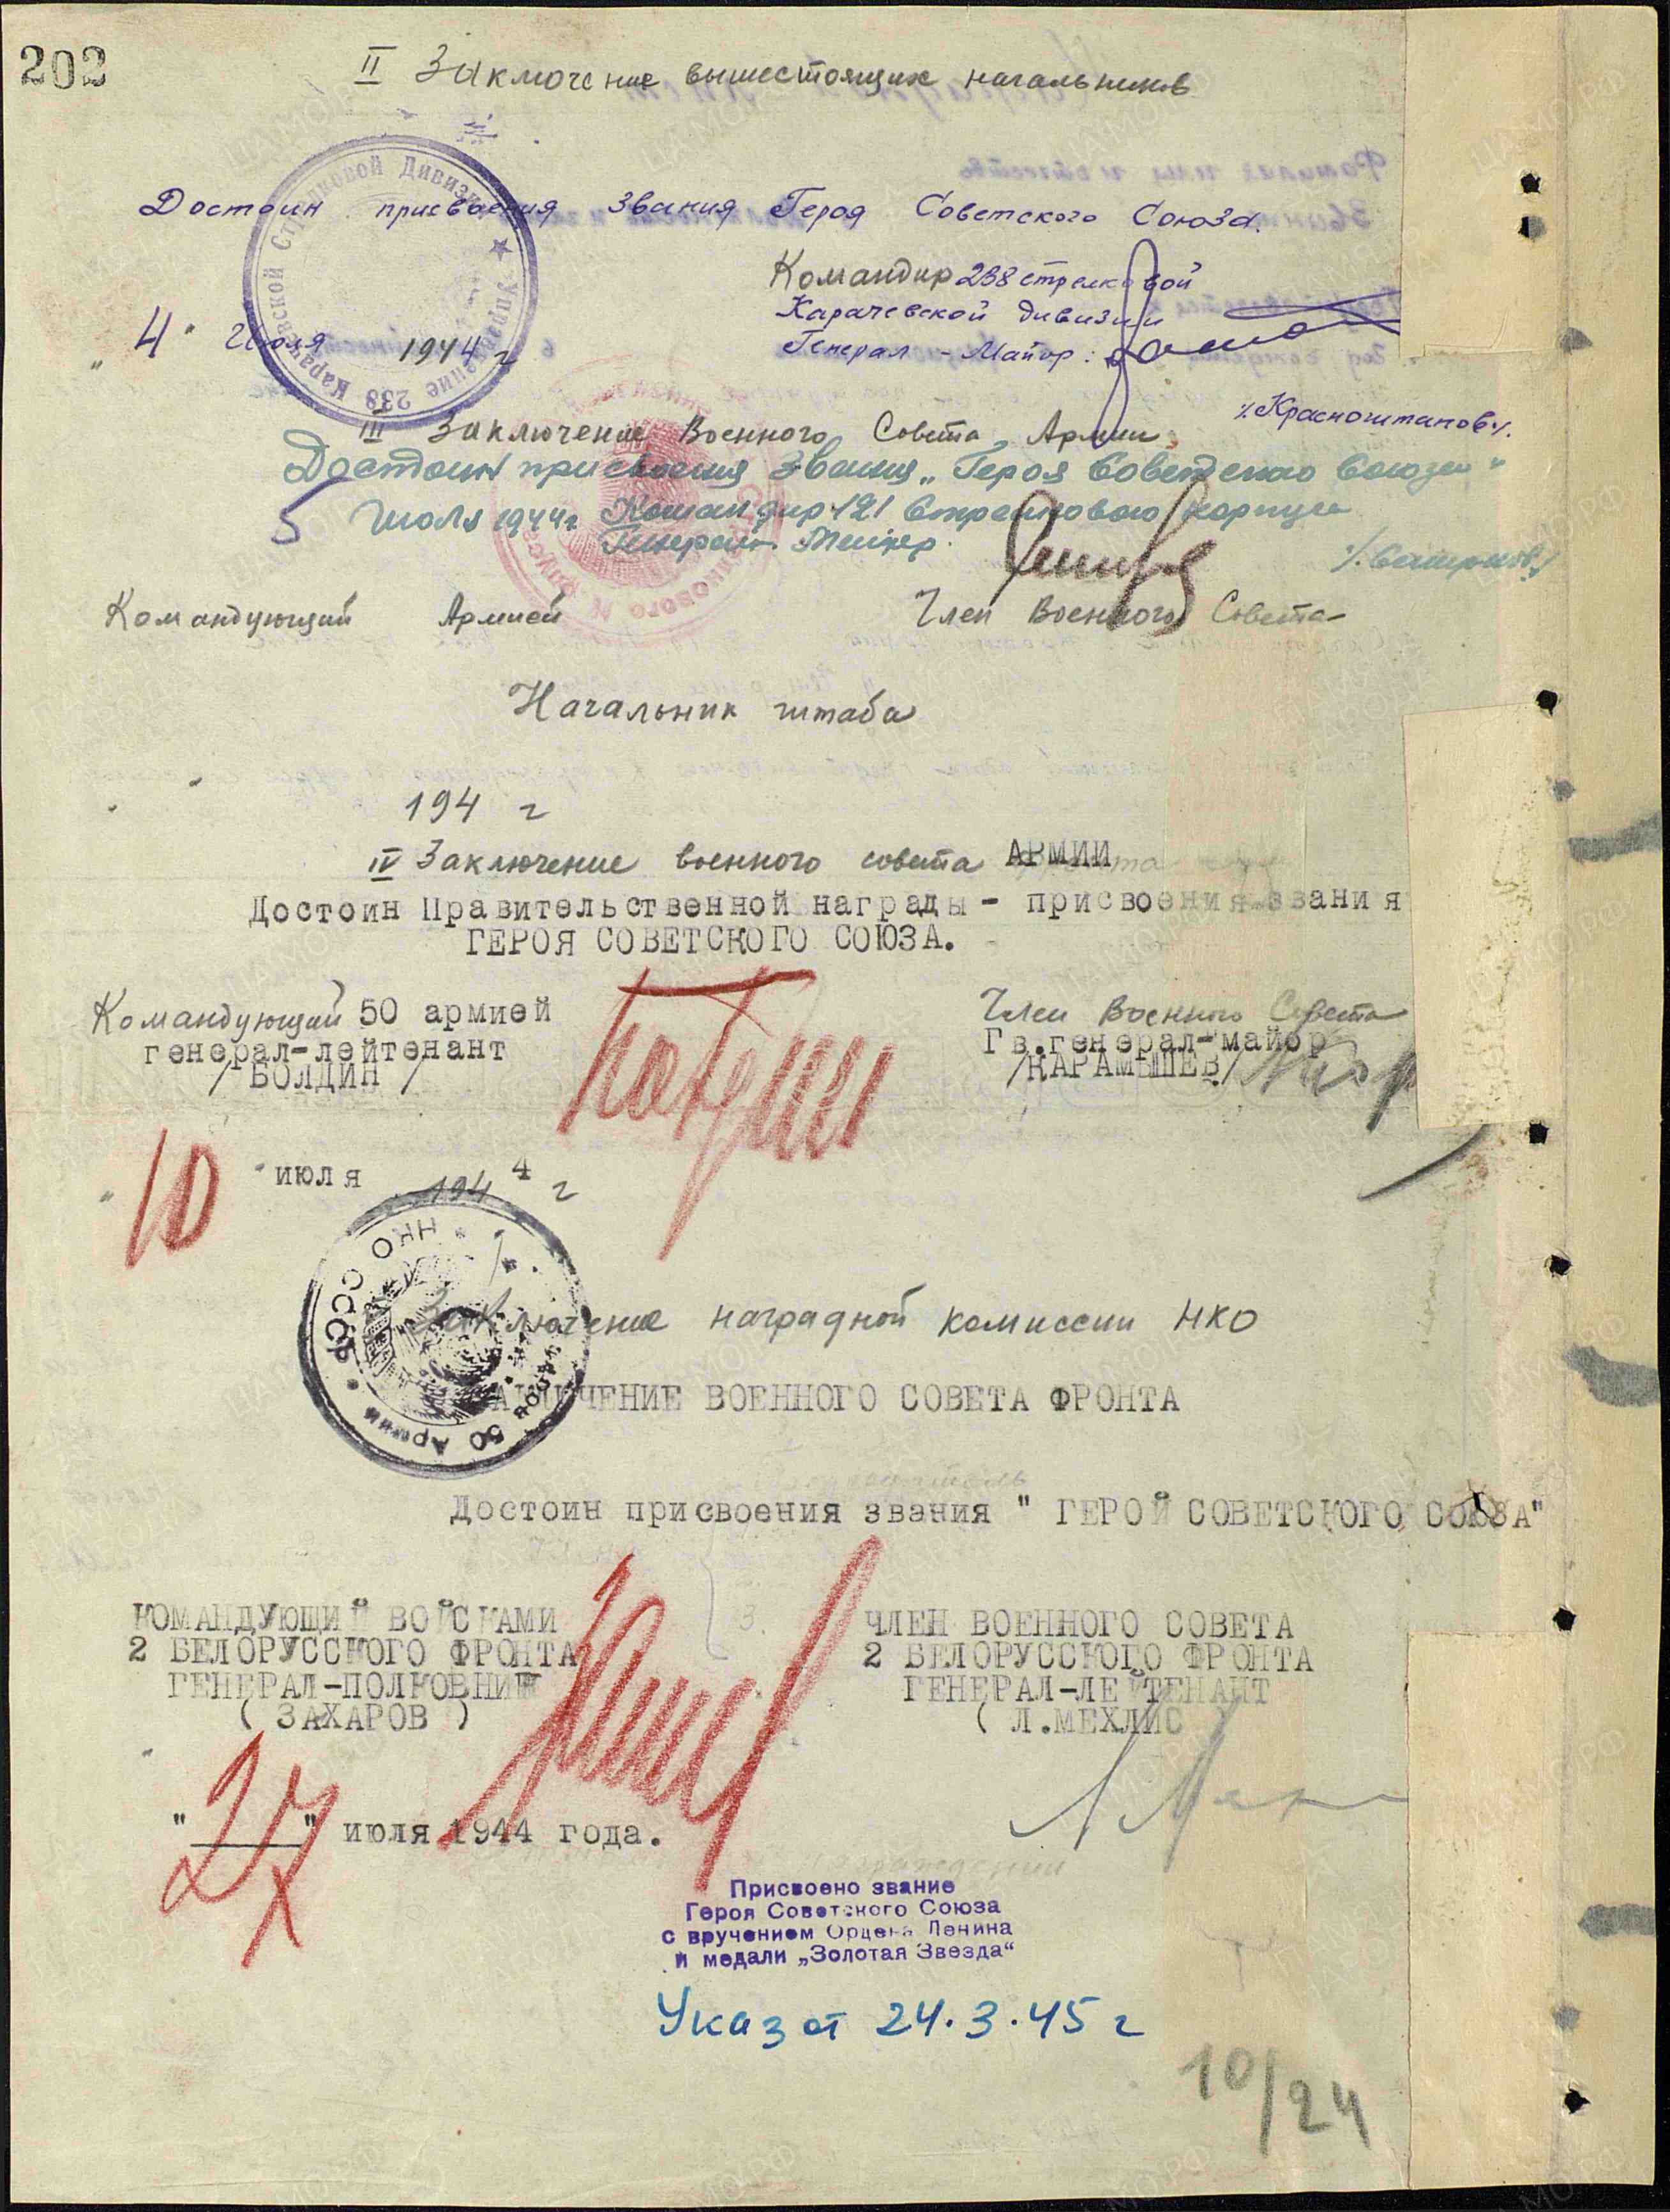 202
II Заключение вышестоящих начальников
Достоин присвоения звания Героя Советского Союза.
Командир 238 стрелковой
Карачевской дивизии
Генерал-Майор:
"4" Июля 1944 г
/Красноштанов/.
Управление 238 Карачевской Стрелковой Дивизии
III Заключение Военного Совета Армии
Достоин присвоения звания „Героя Советского Союза"
5 Июля 1944г Командир 121 Стрелкового корпуса
Генерал-Майор
/Смирнов/
Командующий Армией
Член Военного Совета
Начальник штаба
194 г
IV Заключение военного совета АРМИИ
Достоин Правительственной награды - присвоения звания
ГЕРОЯ СОВЕТСКОГО СОЮЗА.
Командующий 50 армией
генерал-лейтенант
/БОЛДИН /
Член Военного Совета
Гв.генерал-майор
/КАРАМЫШЕВ/
"10" июля 1944 г
НКО СССР
50 Армии
Заключение наградной комиссии НКО
ЗАКЛЮЧЕНИЕ ВОЕННОГО СОВЕТА ФРОНТА
Достоин присвоения звания " ГЕРОЙ СОВЕТСКОГО СОЮЗА"
КОМАНДУЮЩИЙ ВОЙСКАМИ
2 БЕЛОРУССКОГО ФРОНТА
ГЕНЕРАЛ-ПОЛКОВНИК
( ЗАХАРОВ )
ЧЛЕН ВОЕННОГО СОВЕТА
2 БЕЛОРУССКОГО ФРОНТА
ГЕНЕРАЛ-ЛЕЙТЕНАНТ
( Л.МЕХЛИС
"27" июля 1944 года.
Присвоено звание
Героя Советского Союза
с вручением Ордена Ленина
и медали „Золотая Звезда"
Указ от 24.3.45 г
10/24